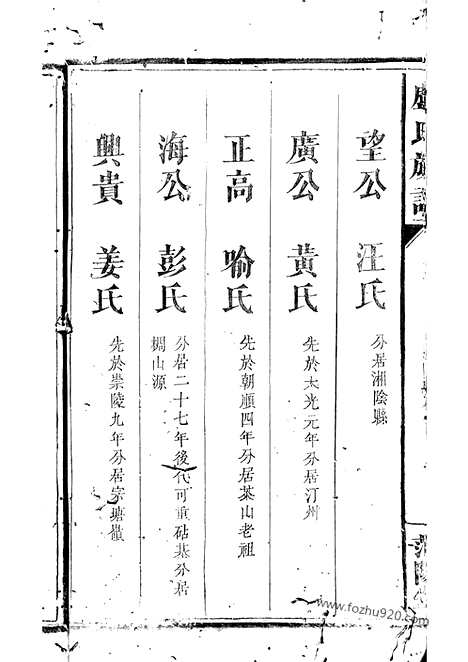 盧氏族譜
望公 汪氏 分居湘陰縣
廣公 黃氏 先於太光元年分居汀州
正高 喻氏 先於朝順四年分居葉山老祖
海公 彭氏 分居二十七年後代可重砧基分居
山源
興貴 姜氏 先於崇陵九年分居宗塘嶺
范陽
www.fozhu920.com